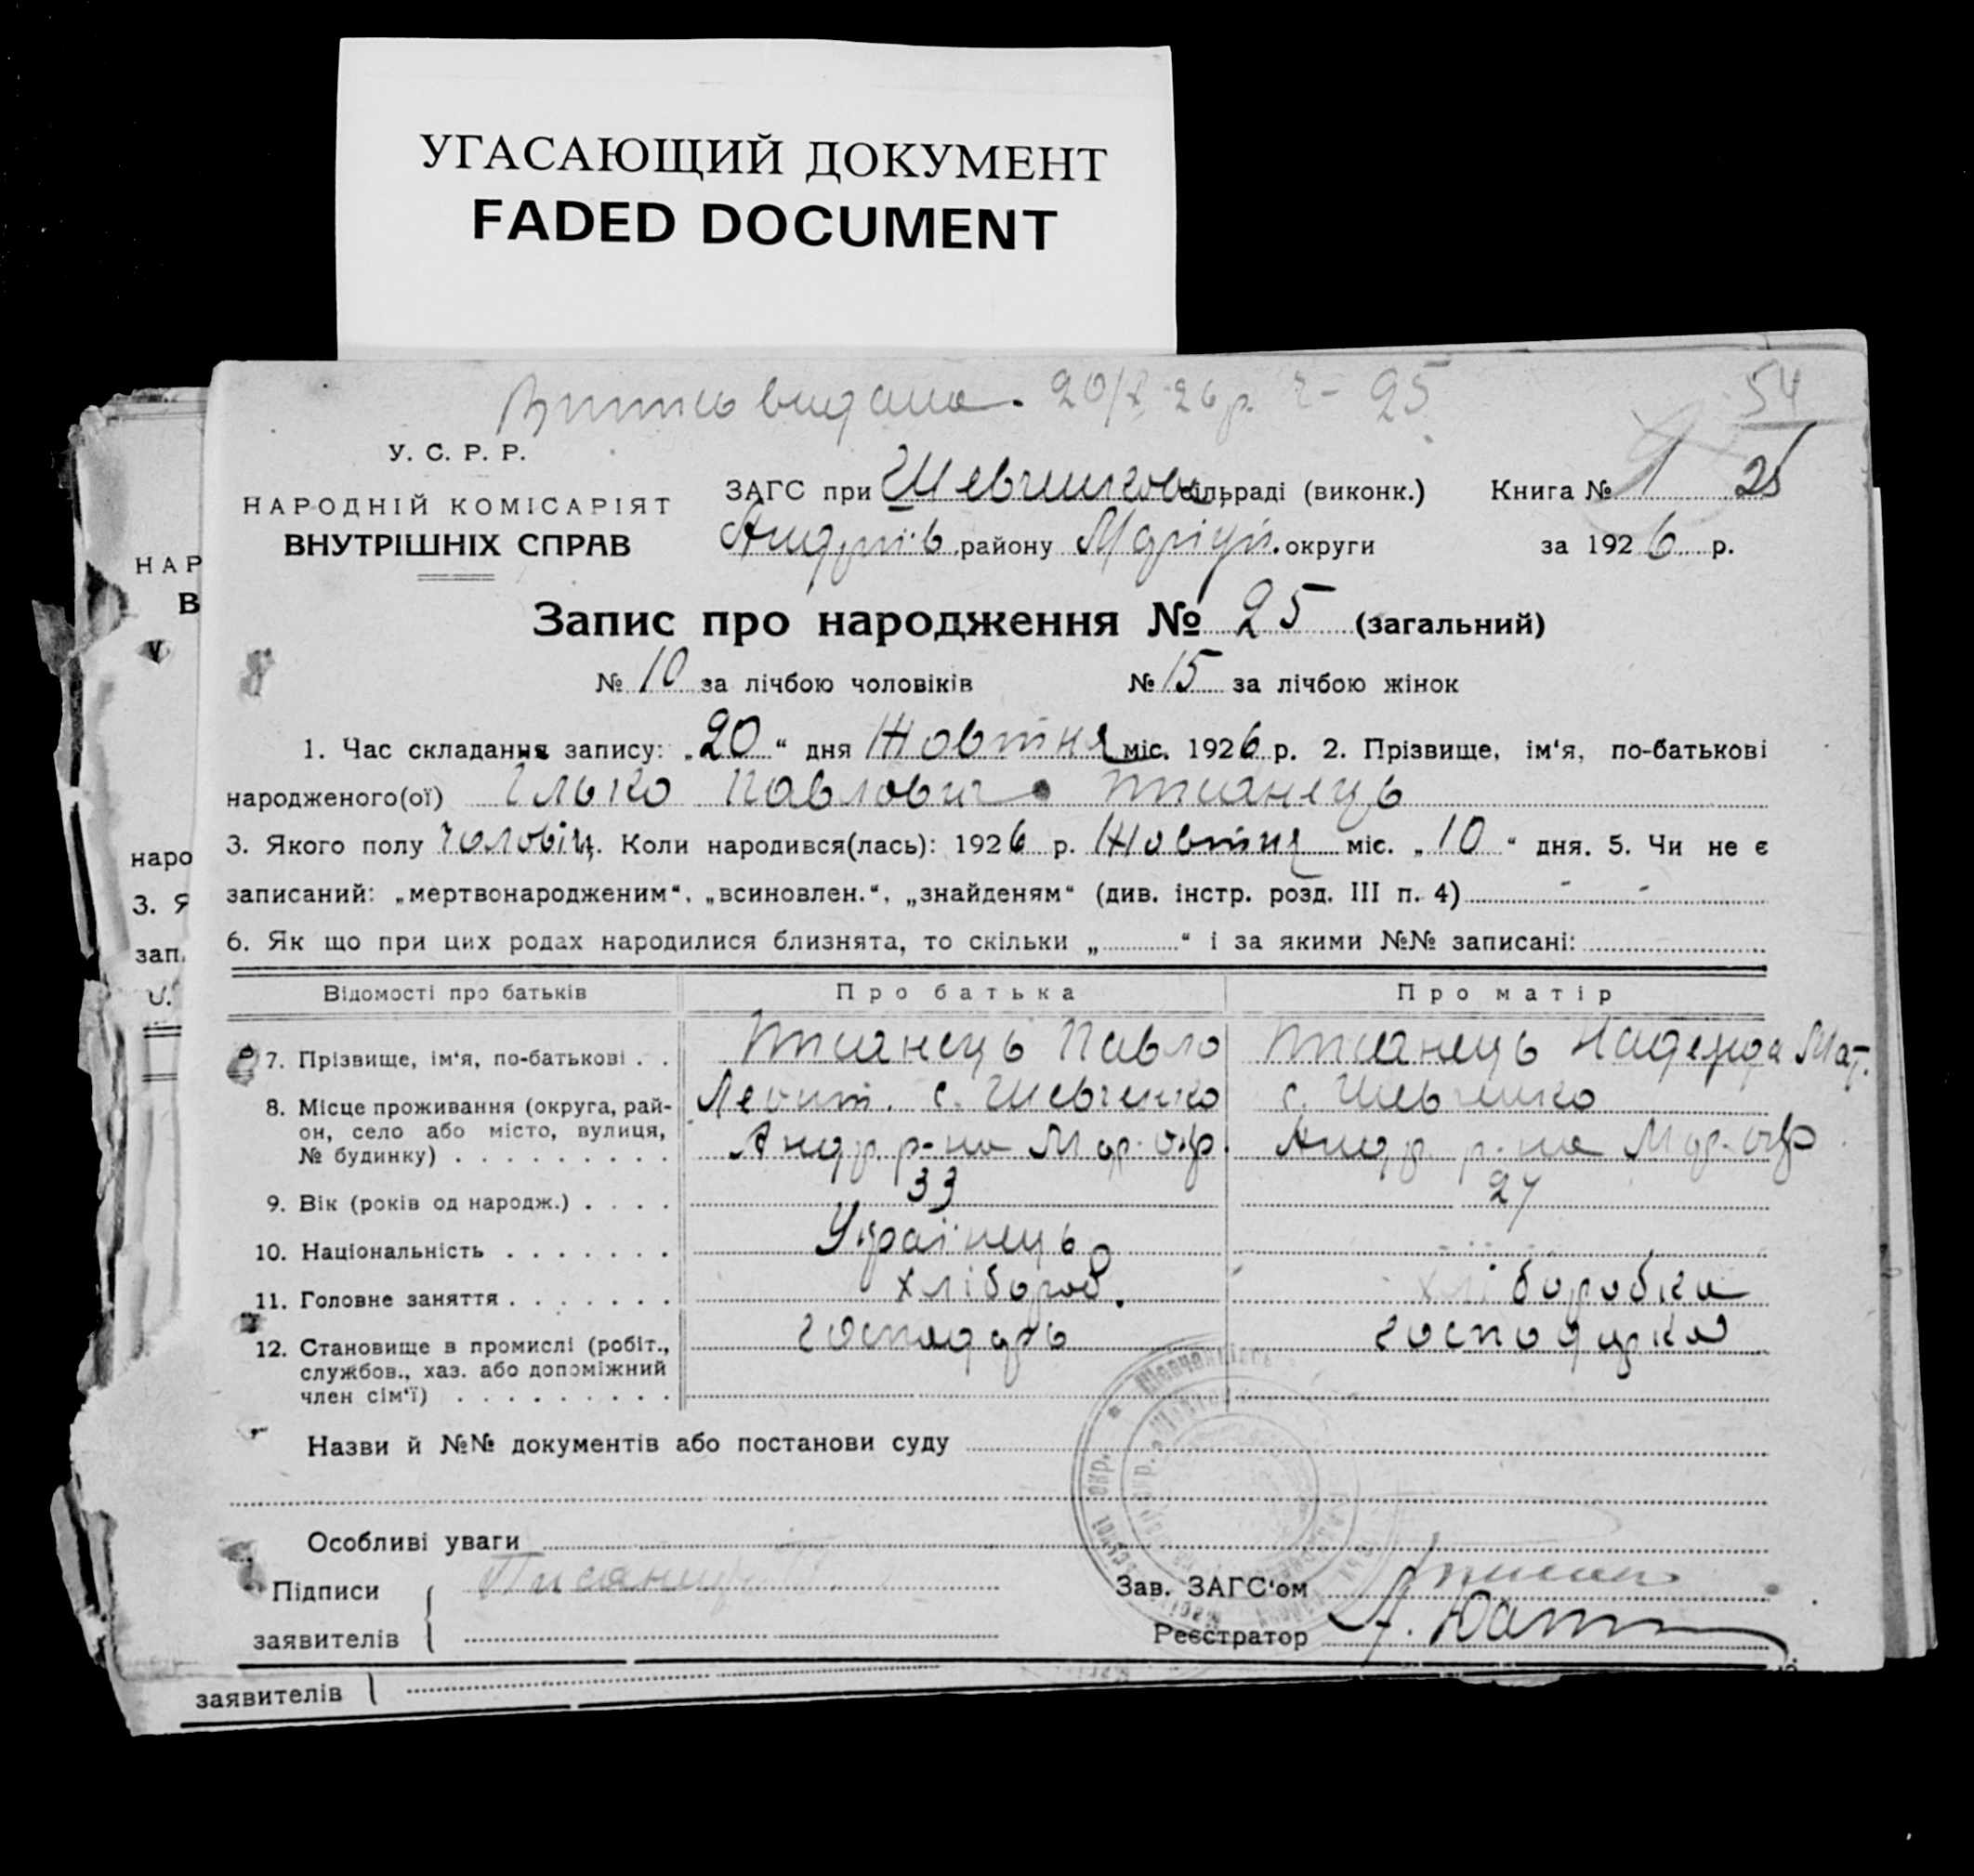 УГАСАЮЩИЙ ДОКУМЕНТ
FADED DOCUMENT
Витяг видана. 20/X 26 р. ч- 25
54
У. С. Р. Р.
НАРОДНІЙ КОМІСАРІЯТ
ВНУТРІШНІХ СПРАВ
ЗАГС при Шевченков сільраді (виконк.)
Книга № 1 25
Андріїв району Маріуп. округи
за 1926 р.
Запис про народження № 25 (загальний)
№ 10 за лічбою чоловіків № 15 за лічбою жінок
1. Час складання запису: „20“ дня Жовтня міс. 1926 р. 2. Прізвище, ім'я, по-батькові
народженого(ої) Ілько Павлович Писанець
3. Якого полу чоловіч. Коли народився(лась): 1926 р. Жовтня міс. „10“ дня. 5. Чи не є
записаний: „мертвонародженим“, „всиновлен.“, „знайденям“ (див. інстр. розд. III п. 4)
6. Як що при цих родах народилися близнята, то скільки „ “ і за якими №№ записані:
Відомості про батьків Про батька Про матір
7. Прізвище, ім'я, по-батькові . . Писанець Павло Писанець Надежда Мат.
8. Місце проживання (округа, рай-
он, село або місто, вулиця,
№ будинку)
с. Шевченко с. Шевченко
Андр. р-на Мар. окр. Андр. р-на Мар. окр
9. Вік (років од народж.) . . . . 33 27
10. Національність . . . . . . . Українець
11. Головне заняття . . . . . . . хлібороб. хлiборобка
12. Становище в промислі (робіт.,
службов., хаз. або допоміжний
член сім'ї)
господарь господарка
Назви й №№ документів або постанови суду
Особливі уваги
Підписи
заявителів
Писанець П
Зав. ЗАГС'ом
Реєстратор
заявителів
НАР
В
наро
3. Я
зап.